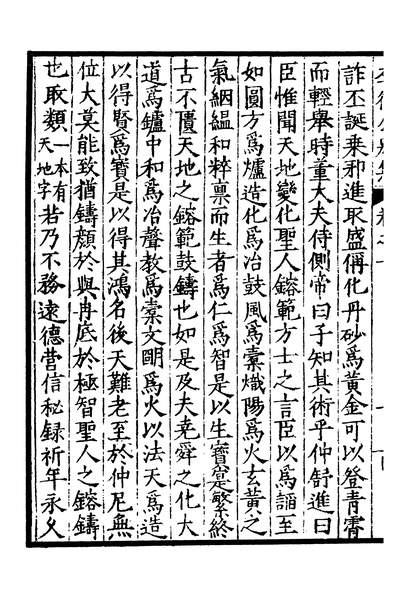 詐丕誕乗邪進取盛稱化丹砂爲黃金可以登青霄
而輕舉時董大夫侍側帝曰子知其術乎仲舒進曰
臣惟聞天地變化聖人鎔範方士之言臣以爲諂至
如圓方爲爐造化爲冶鼓風爲橐熾陽爲火玄黃之
氣絪縕和粹稟而生者爲仁爲智是以生寶寔繁終
古不匱天地之鎔範鼓鑄也如是及夫堯舜之化大
道爲鑪中和爲冶聲教爲橐文明爲火以法天爲造
以得賢爲寳是以得其鴻名後天難老至於仲尼無
位大莫能致猶鑄顔於與冉底於極智聖人之鎔鑄
也取類一本有天地字若乃不務遠德營信秘録祈年永久